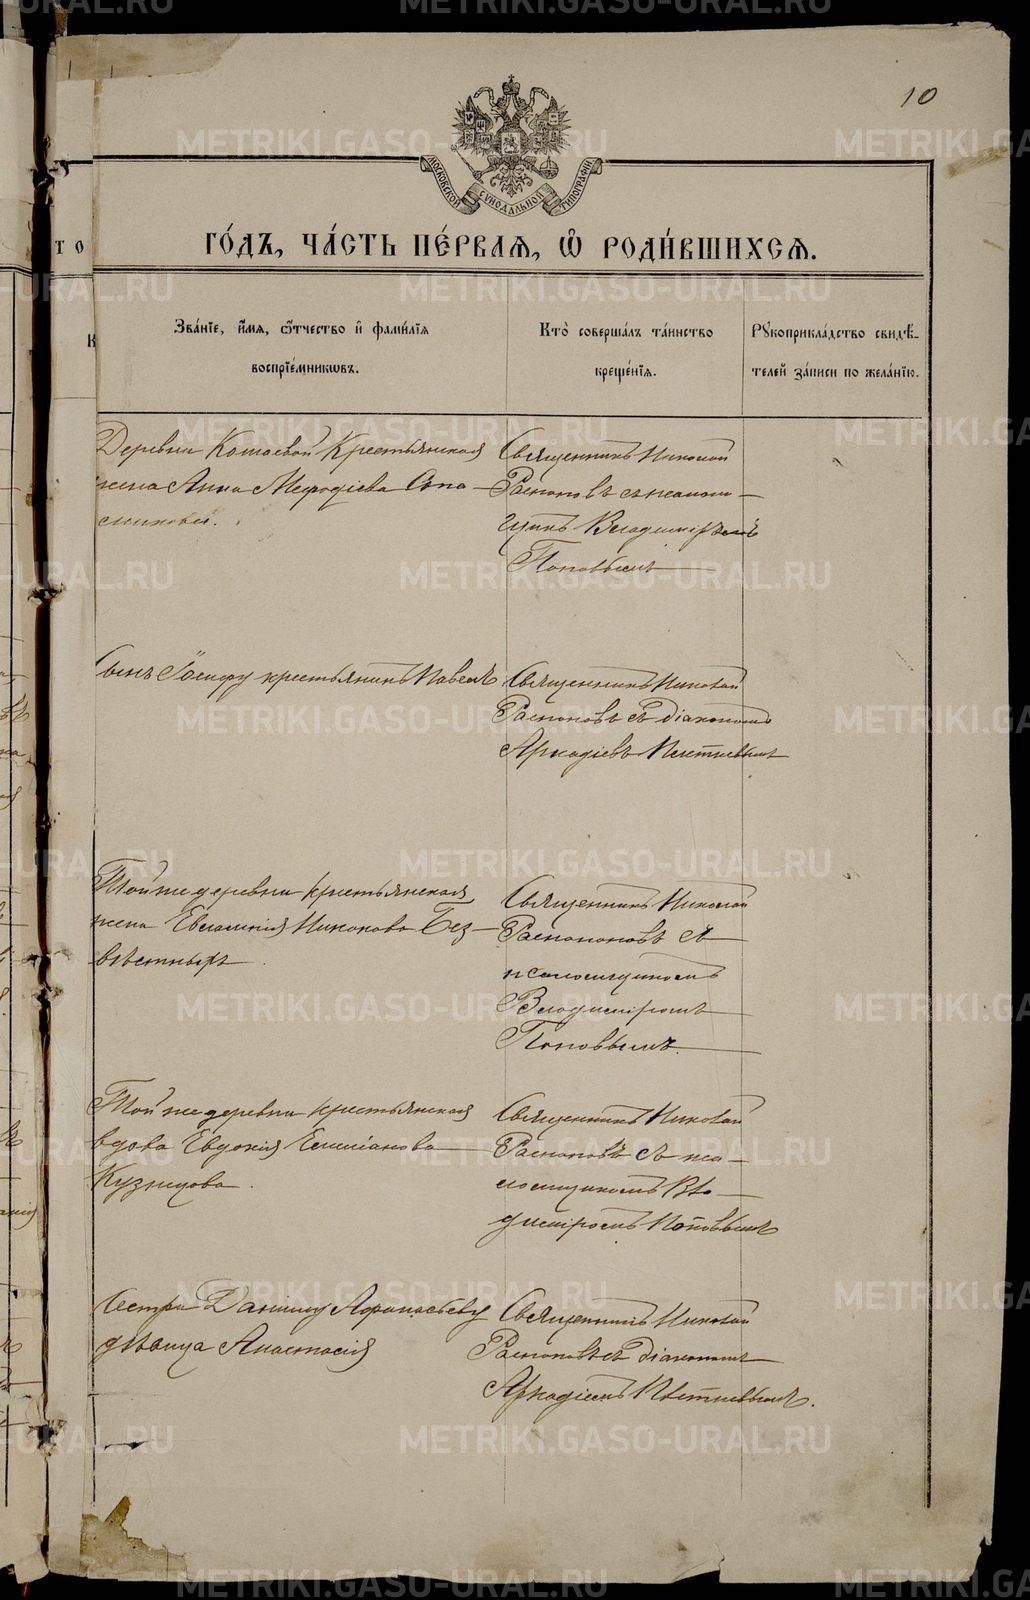 10
МОСКОВСКОЙ СУНОДАЛЬНОЙ ТИПОГРАФІИ
ТО
ГО́ДЪ, ЧА́СТЬ ПЕ́РВАѦ, Ѡ҆ РОДИ́ВШИХСѦ.
К
Зва́нїе, и҆́мѧ, ѻ҆́тчество и҆ фами́лїѧ
воспрїе́мникѡвъ.
Кто̀ соверша́лъ та́инство
креще́нїѧ.
Рꙋкоприкла́дство свидѣ́-
телей за́писи по жела́нїю.
Деревни Крестьянская
жена Анна Меѳодіева
Священникъ Николай
Распоповъ съ псаломщи-
комъ Владиміромъ
Поповымъ
Сынъ Іосифу крестьянинъ Павелъ
Священникъ Николай
Распоповъ съ діакономъ
Аркадіевъ
Той же деревни крестьянская
жена Евгенія Никонова Без-
вѣстныхъ
Священникъ Николай
Распоповъ съ
псаломщикомъ
Владиміромъ
Поповымъ.
Той же деревни крестьянская
вдова Евдокія Емилианова
Кузнецова.
Священникъ Николай
Распоповъ съ пса-
ломщикомъ Вла-
диміромъ Поповымъ
Сестра Даниилу Афанасьеву
дѣвица Анастасія
Священникъ Николай
Распоповъ съ діакономъ
Аркадіемъ
METRIKI.GASO-URAL.RU